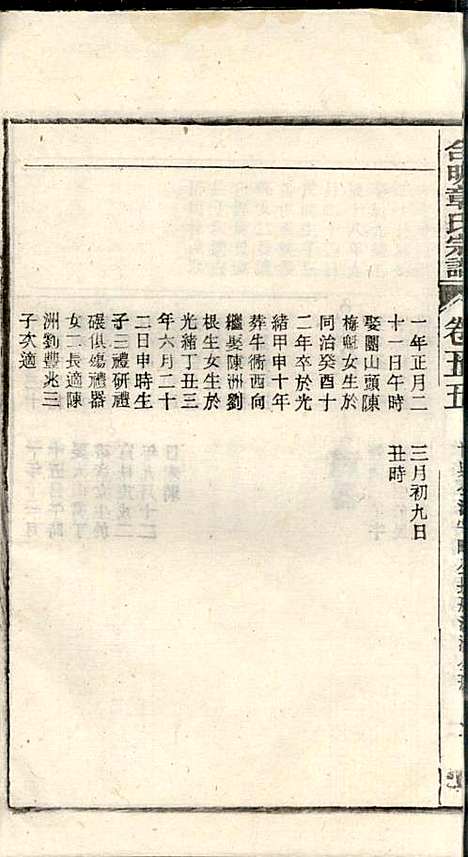 章氏宗譜
卷五十五
一年正月二
十一日午時
娶關山頭陳
梅魁女生於
同治癸酉十
二年卒於光
緒甲申十年
葬牛衕西向
繼娶陳洲劉
根生女生於
光緒丁丑三
年六月二十
二日申時生
子三禮研禮
碾俱殤禮器
女二長適陳
洲劉豐兆三
子次適
三月初九日
丑時